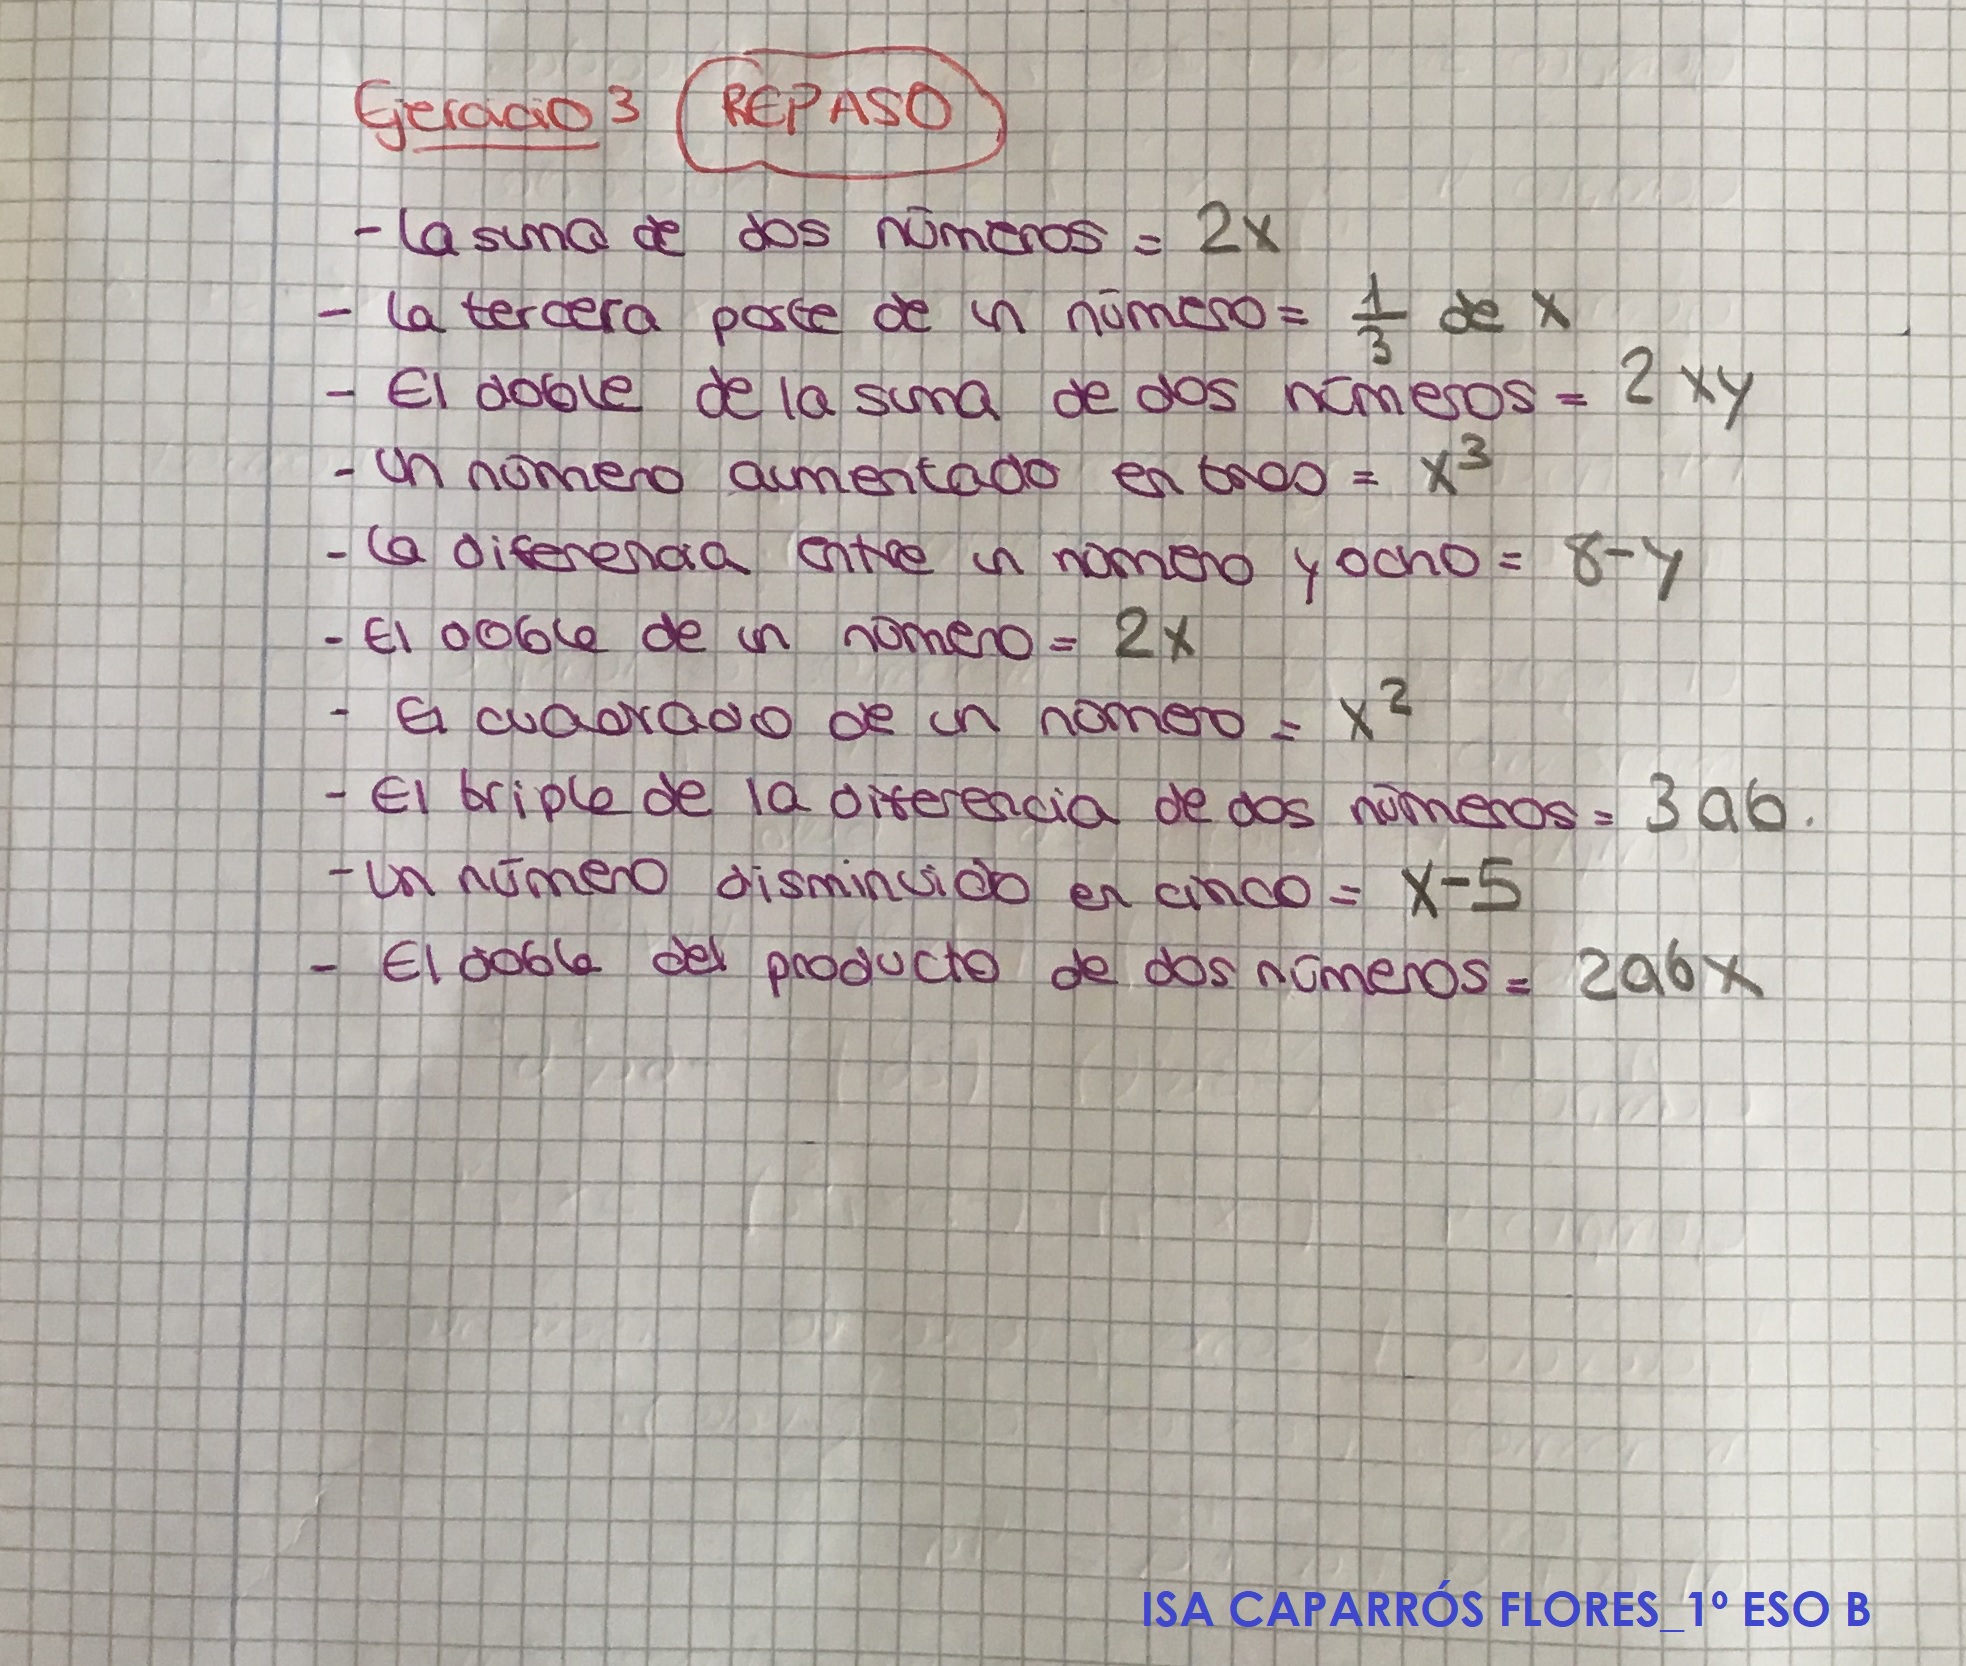 Ejercicio 3 REPASO
- La suma de dos números = 2x
- La tercera parte de un número = 1/3 de x
- El doble de la suma de dos números = 2xy
- Un número aumentado en tres = x³
- La diferencia entre un número y ocho = 8-y
- El doble de un número = 2x
- El cuadrado de un número = x²
- El triple de la diferencia de dos números = 3ab.
- Un número disminuido en cinco = x-5
- El doble del producto de dos números = 2abx
ISA CAPARRÓS FLORES_1º ESO B